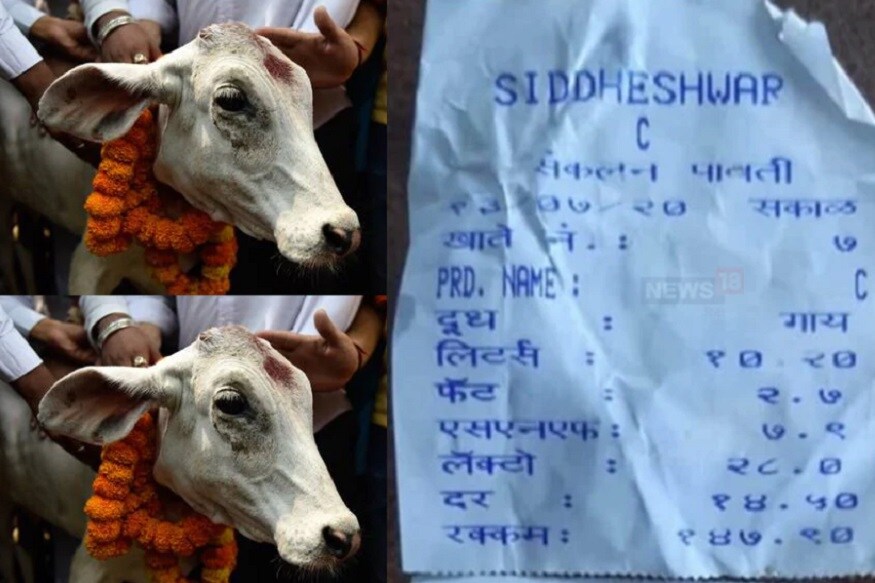 SIDDHESHWAR
C
संकलन पावती
१३/०७/२० सकाळ
खाते नं. : ७
PRD. NAME : C
NEWS18
दूध : गाय
लिटर्स : १०.२०
फॅट : २.७
एसएनएफ : ७.९
लॅक्टो : २८.०
दर : १४.५०
रक्कम : १४७.९०